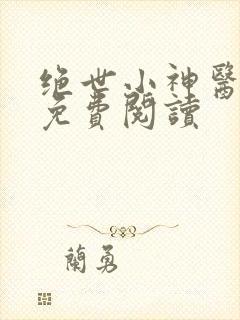 绝世小神醫
免費閱讀
蘭勇